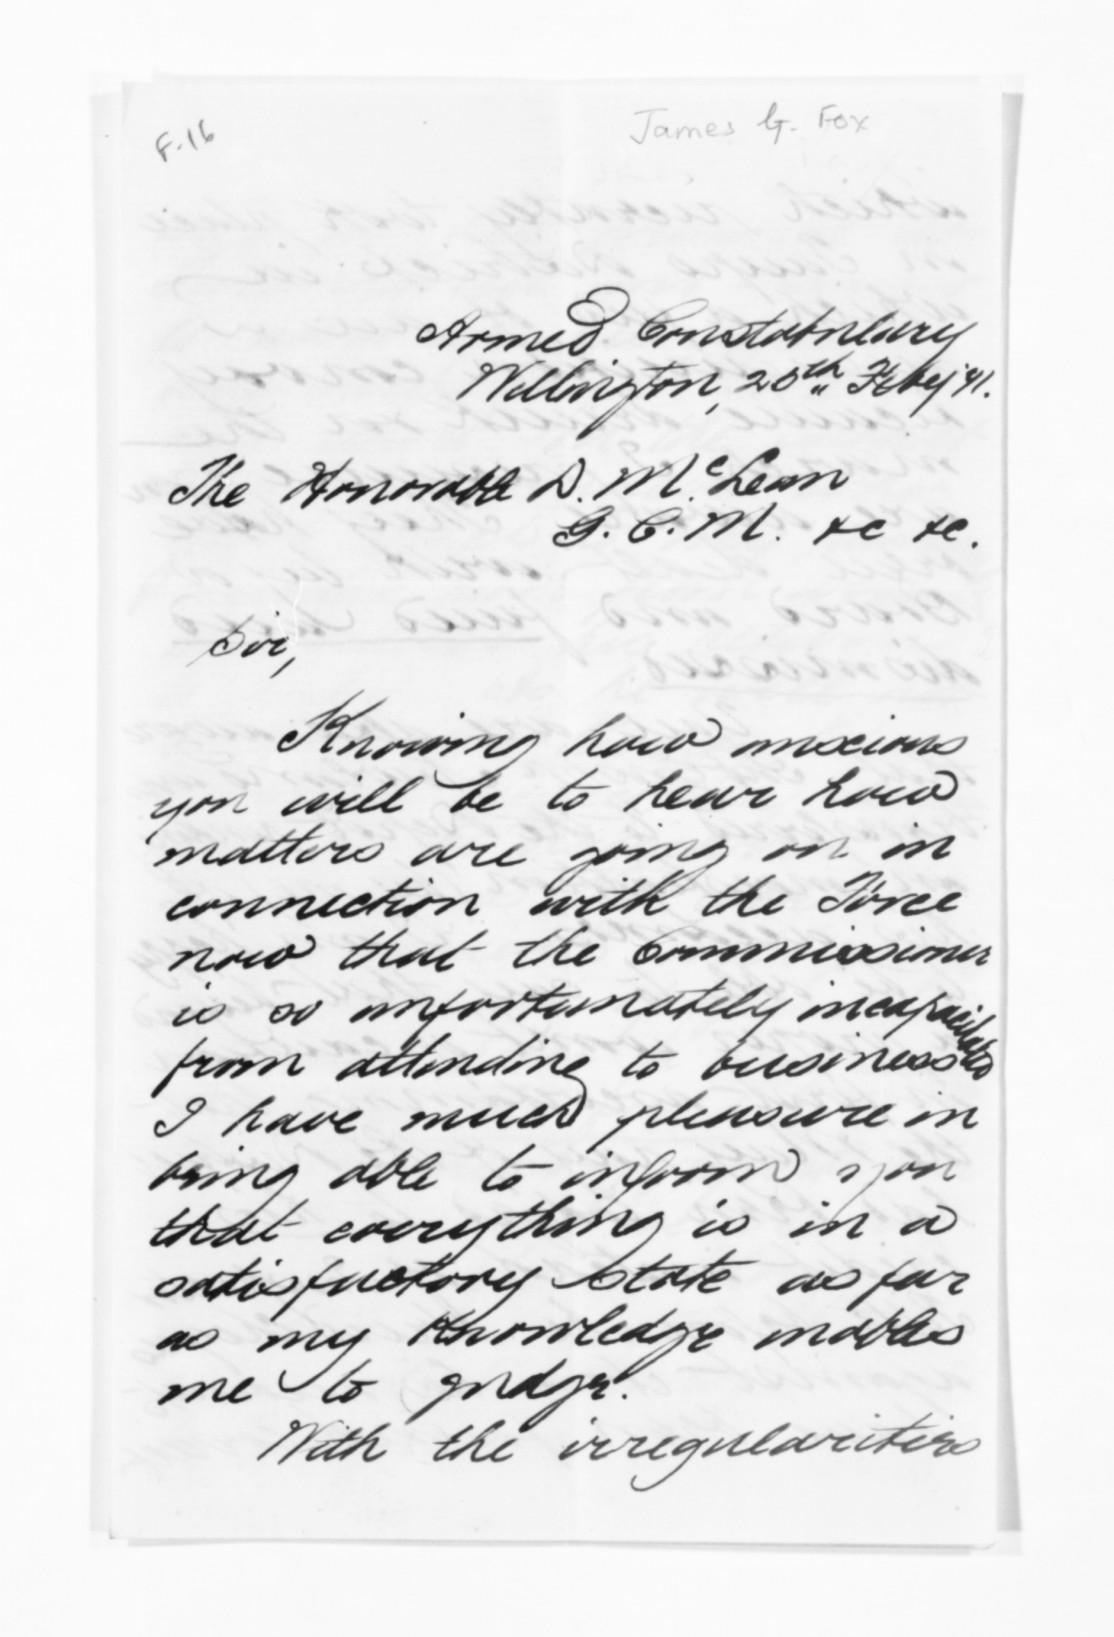 F.16
James G. Fox
Armed Constabulary
Wellington, 20th Feby '71.
The Honorable D. McLean
G. C. M. &c &c.
Sir,
Knowing how anxious
you will be to hear how
matters are going on in
connection with the Force
now that the Commissioner
is so unfortunately incapacitated
from attending to business
I have much pleasure in
being able to inform you
that everything is in a
satisfactory state as far
as my knowledge enables
me to judge.
With the irregularities